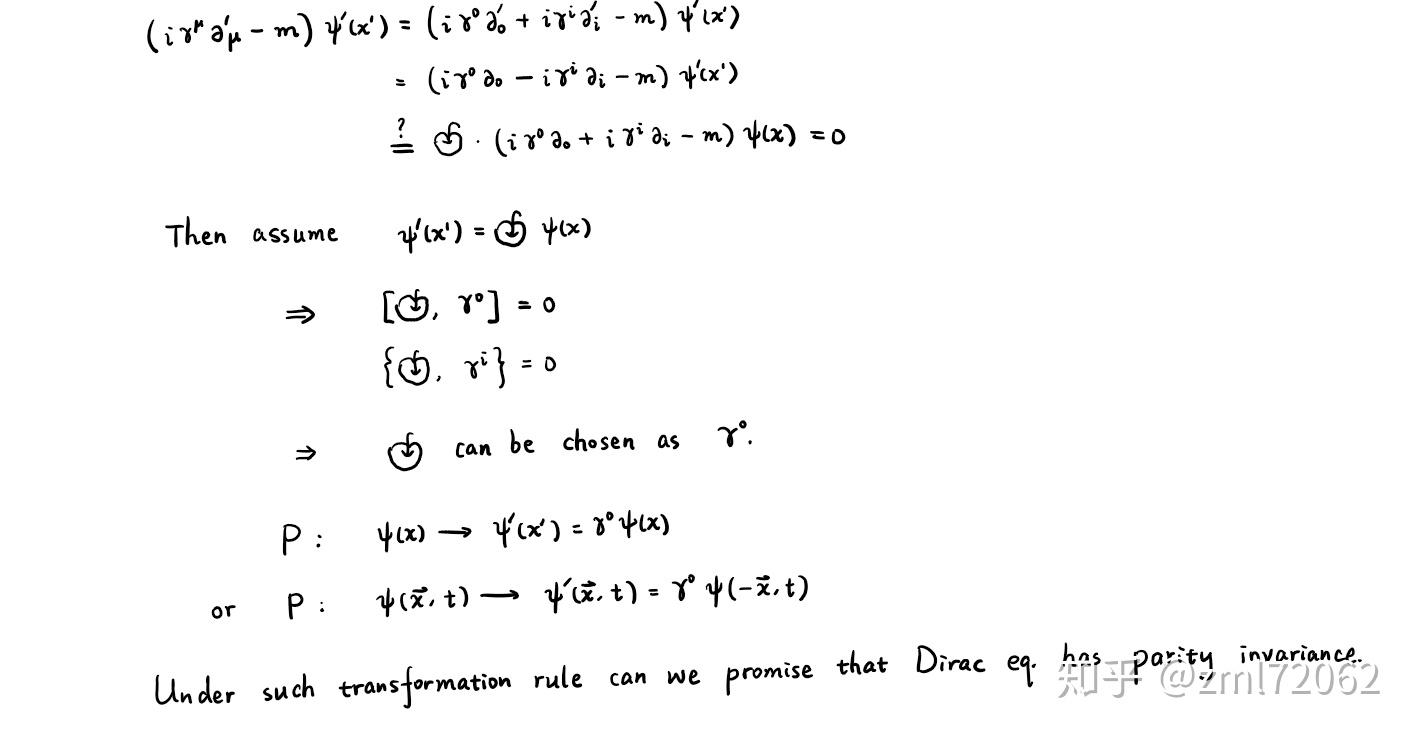 (iγ^μ ∂'_μ − m) ψ'(x') = (iγ⁰∂'₀ + iγⁱ∂'ᵢ − m) ψ'(x')
= (iγ⁰∂₀ − iγⁱ∂ᵢ − m) ψ'(x')
?= · (iγ⁰∂₀ + iγⁱ∂ᵢ − m) ψ(x) = 0
Then assume ψ'(x') = ψ(x)
⇒ [ , γ⁰] = 0
{ , γⁱ} = 0
⇒ can be chosen as γ⁰.
P : ψ(x) → ψ'(x') = γ⁰ψ(x)
or P : ψ(x⃗, t) → ψ'(x⃗, t) = γ⁰ ψ(−x⃗, t)
Under such transformation rule can we promise that Dirac eq. has parity invariance.
知乎 @zml72062